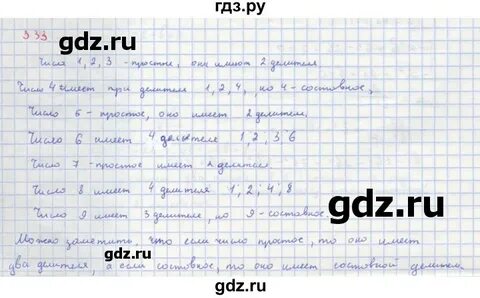 гдз.ру
333
gdz.ru
gdz.ru
Числа 1, 2, 3 - простые, они имеют 2 делителя
Число 4 имеет три делителя 1, 2, 4, но 4 - составное,
Число 5 - простое, оно имеет 2 делителя.
Число 6 имеет 4 делителя 1, 2, 3 6
Число 7 - простое имеет 2 делителя.
Число 8 имеет 4 делителя 1; 2; 4; 8
gdz.ru
gdz.ru
Число 9 имеет 3 делителя, но 9 - составное.
Можно заметить, что если число простое, то оно имеет
два делителя, а если составное, то оно имеет составной делитель.
gdz.ru